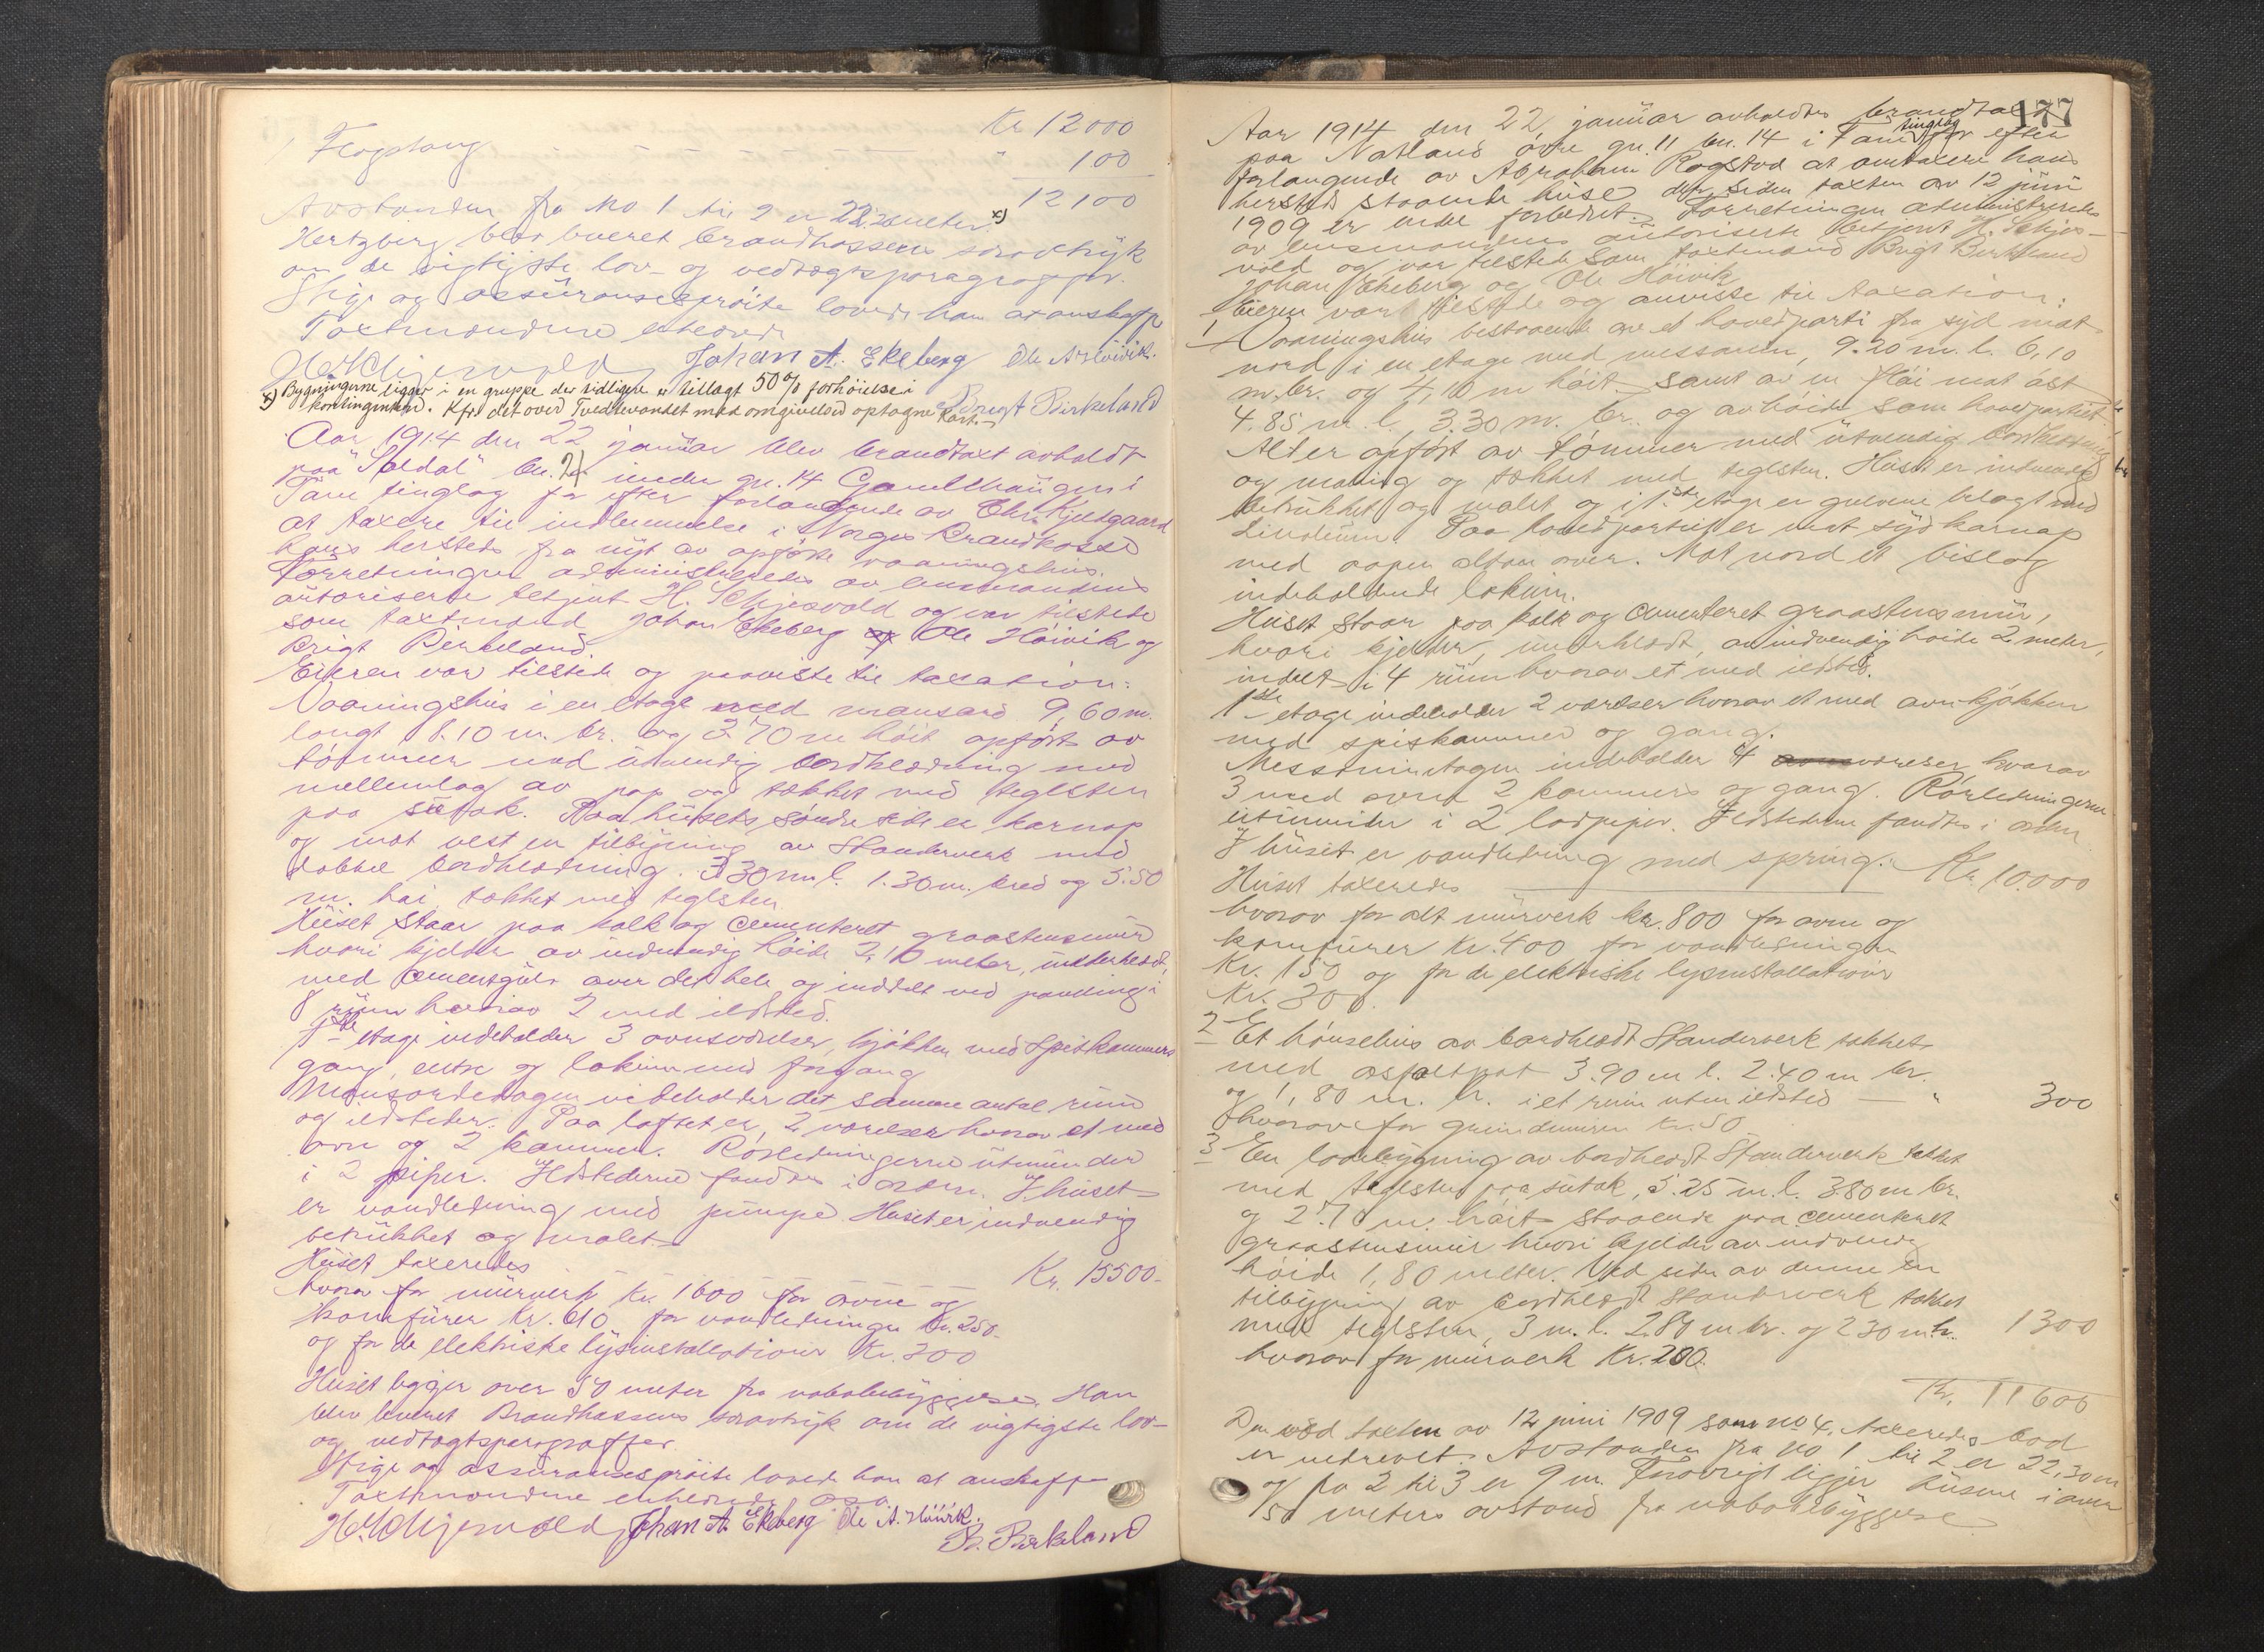 Kr 12000
Flagstang — — — — — " 100
12100
Avstanden fra No 1 til 2 er 22.20 meter. x)
Hertzberg blev leveret brandkassens særtryk
om de vigtigste lov- og vedtægtsparagrapher.
Stige og assüransesprøite lovede han at anskaffe
Taxtmændene enhedende
H. Schjesvold Johan A. Ekeberg Ole A. Høivik.
x) Bygningerne ligger i en gruppe der tidligere er tillagt 50% forhøielse i
kontingenten. Kfr. det over Tvedtevandet med omgivelser optagne Kart.
Brigt Birkeland
Aar 1914 den 22 januar blev brandtaxt avholdt
paa "Soldal" bn. 24 under gn. 14 Gamlehaugen i
Fane tinglag for efter forlangende av Chr. Kjeldgaard
at taxere til indlemmelse i Norges Brandkasse
hans hersteds fra nyt av opførte vaaningshus.
Forretningen administreredes av lensmandens
autoriserte betjent H. Schjesvold og var tilstede
som taxtmænd Johan Ekeberg Ole Høivik og
Brigt Birkeland.
Eieren var tilstede og paaviste til taxation:
Vaaningshus i en etage med mansard 9,60 m.
langt 8.10 m. br. og 3.70 m høit opført av
tømmer med utvendig bordklædning med
mellemlag av pap og tækket med teglsten
paa sutak. Paa husets søndre side er karnap
og mot vest en tilbygning av Standerverk med
dobbel bordklædning. 3.30 m l. 1.30 m. bred og 5.50
m. høi tækket med teglsten.
Huset staar paa kalk og cementeret graastensmur
hvori kjelder av indvendig høide 2,10 meter, underklædt,
med cementgulv over det hele og inddelt ved panling i
8 rum hvorav 2 med ildsted.
1ste etage indeholder 3 ovnsværelser, kjøkken med Spiskammer
gang, entre og lokum med forgang
Mansardetagen indeholder det samme antal rum
og ildsteder. Paa loftet er 2 værelser hvorav et med
ovn og 2 kammer. Rørledningerne utmunder
i 2 piper. Ildstederne fandtes i orden. I huset
er vandledning med pumpe. Huset er indvendig
betrukket og malet
Huset taxeredes — — — — Kr. 15500-
hvorav for murverk Kr. 1600 for ovne og
komfurer Kr. 610 for vandledningen Kr. 250.
og for de elektriske lysinstallationer Kr. 300
Huset ligger over 50 meter fra nabobebyggelse. Han
blev leveret Brandkassens særtryk om de vigtigste lov-
og vedtægtsparagraffer.
Stige og assuransesprøite lovede han at anskaffe
Taxtmændene enhedende
H. Schjesvold Johan A. Ekeberg Ole A. Høivik.
B. Birkeland
177
Aar 1914 den 22 januar avholdtes brandtaxt
paa Natland øvre gn. 11 bn. 14 i Fane tinglag for efter
forlangende av Abraham Rogstad at omtaxere hans
hersteds staaende huse der siden taxten av 12 juni
1909 er endel forbedret. Forretningen administreredes
av lensmandens autoriserte betjent H. Schjes-
vold og var tilstede som taxtmænd Brigt Birkeland
Johan Ekeberg og Ole Høivik
Eieren var tilstede og anviste til taxation:
1 Vaaningshus bestaaende av et hovedparti fra syd mot
nord i en etage med messanin, 9.20 m. l. 6,10
m. br. og 4,10 m høit samt av en fløi mot øst
4.85 m. l. 3.30 m. br. og av høide som hovedpartiet.
Alt er opført av tømmer med utvendig bordklædning
og maling og tækket med teglsten. Huset er indvendig
betrukket og malet og i 1ste etage er gulvene belagt med
Linoleum. Paa hovedpartiet er mot syd karnap
med aapen altan over. Mot nord et bislag
indeholdende lokum.
Huset staar paa kalk og cementeret graastensmur,
hvori kjelder, underklædt, av indvendig høide 2 meter,
indelt i 4 rum hvorav et med ildsted.
1ste etage indeholder 2 værelser hvorav et med ovn kjøkken
med spiskammer og gang.
Messaninetagen indeholder 4 værelser hvorav
3 med ovn 2 kammers og gang. Rørledningerne
utmunder i 2 lødpiper. Ildstederne fandtes i orden
I huset er vandledning med spring.
Huset taxeredes — Kr. 10.000
hvorav for alt murverk kr. 800 for ovne og
komfurer Kr. 400 for vandledningen
Kr. 150 og for de elektriske lysinstallationer
Kr. 300.
2 Et hønsehus av bordklædt Standerverk tækket
med asfaltpap 3.90 m l. 2.40 m br.
og 1,80 m. h. i et rum uten ildsted — " 300
hvorav for grundmuren Kr. 50
3 En ladebygning av bordklædt Standerverk tækket
med teglsten paa sutak, 5.25 m. l. 3.80 m br.
og 2.70 m. høit staaende paa cementeret
graastensmur hvori kjelder av indvendig
høide 1,80 meter. Ved siden av denne en
tilbygning av bordklædt standerverk tækket
med teglsten, 3 m. l. 2.80 m br. og 2.30 m h. 1300
hvorav for murverk Kr. 200.
Kr. 11600
Den ved taxten av 12 juni 1909 som no 4. taxeredes bod
er nedrevet. Avstanden fra No 1 til 2 er 22,30 m
og fra 2 til 3 er 9 m. Forøvrigt ligger husene i over
50 meters avstand fra nabobebyggelse